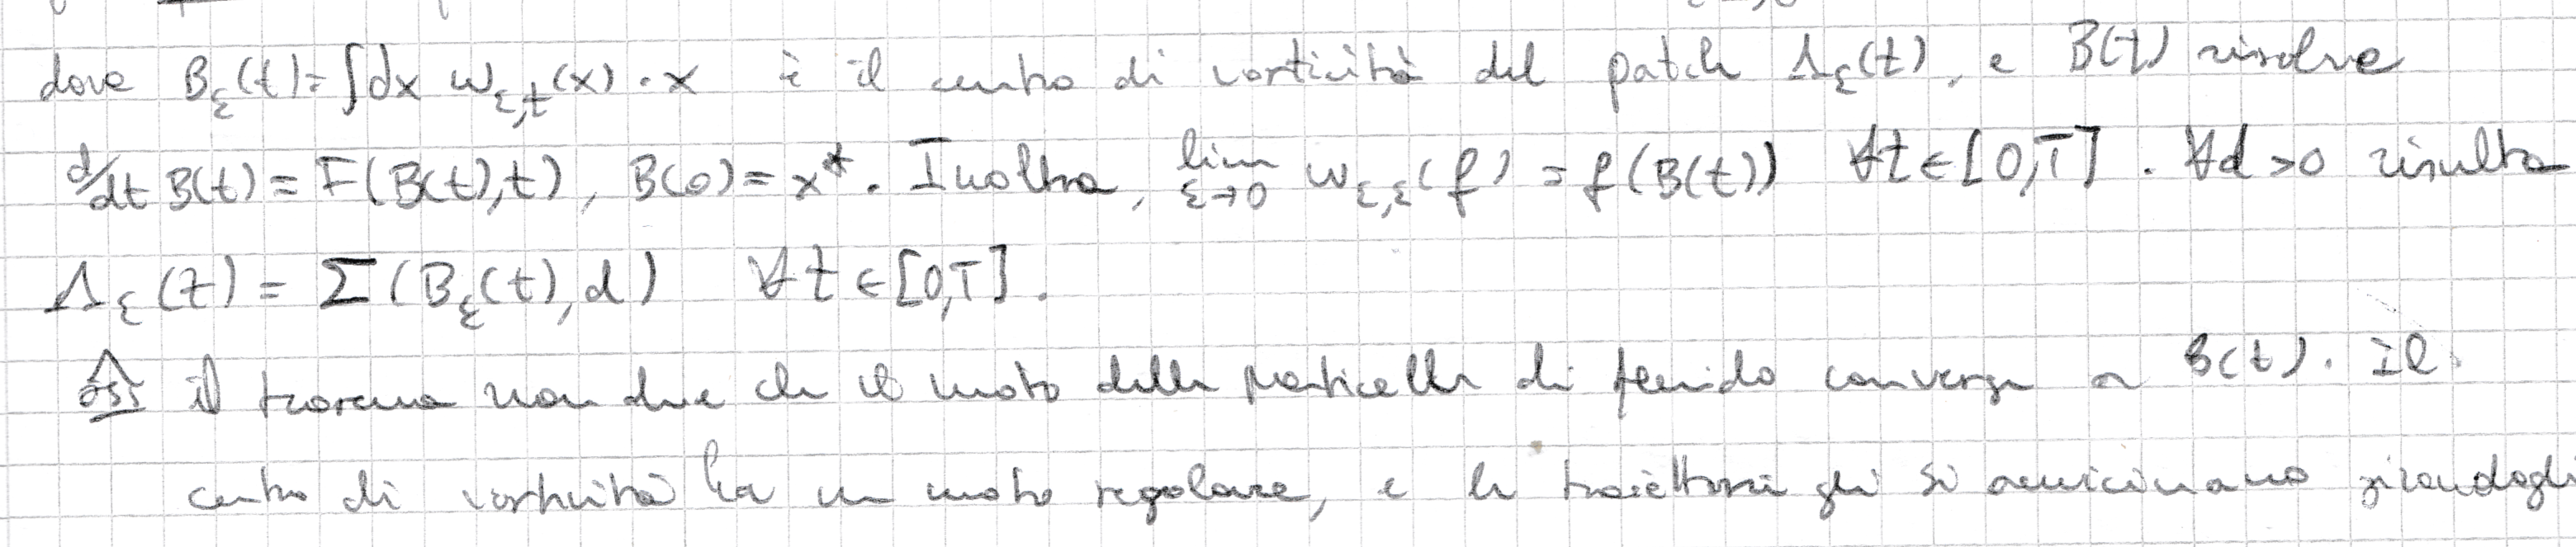 dove B_ε(t) = ∫dx ω_{ε,t}(x) · x è il centro di vorticità del patch Λ_ε(t), e B(t) risolve
d/dt B(t) = F(B(t),t), B(0) = x*. Inoltre, lim_{ε→0} ω_{ε,ε}(f) = f(B(t)) ∀t ∈ [0,T]. ∀d > 0 risulta
Λ_ε(t) = Σ(B_ε(t),d) ∀t ∈ [0,T].
oss il teorema non dice che il moto delle particelle di fluido converge a B(t). Il
centro di vorticità ha un moto regolare, e le traiettorie gli si avvicinano girandogli